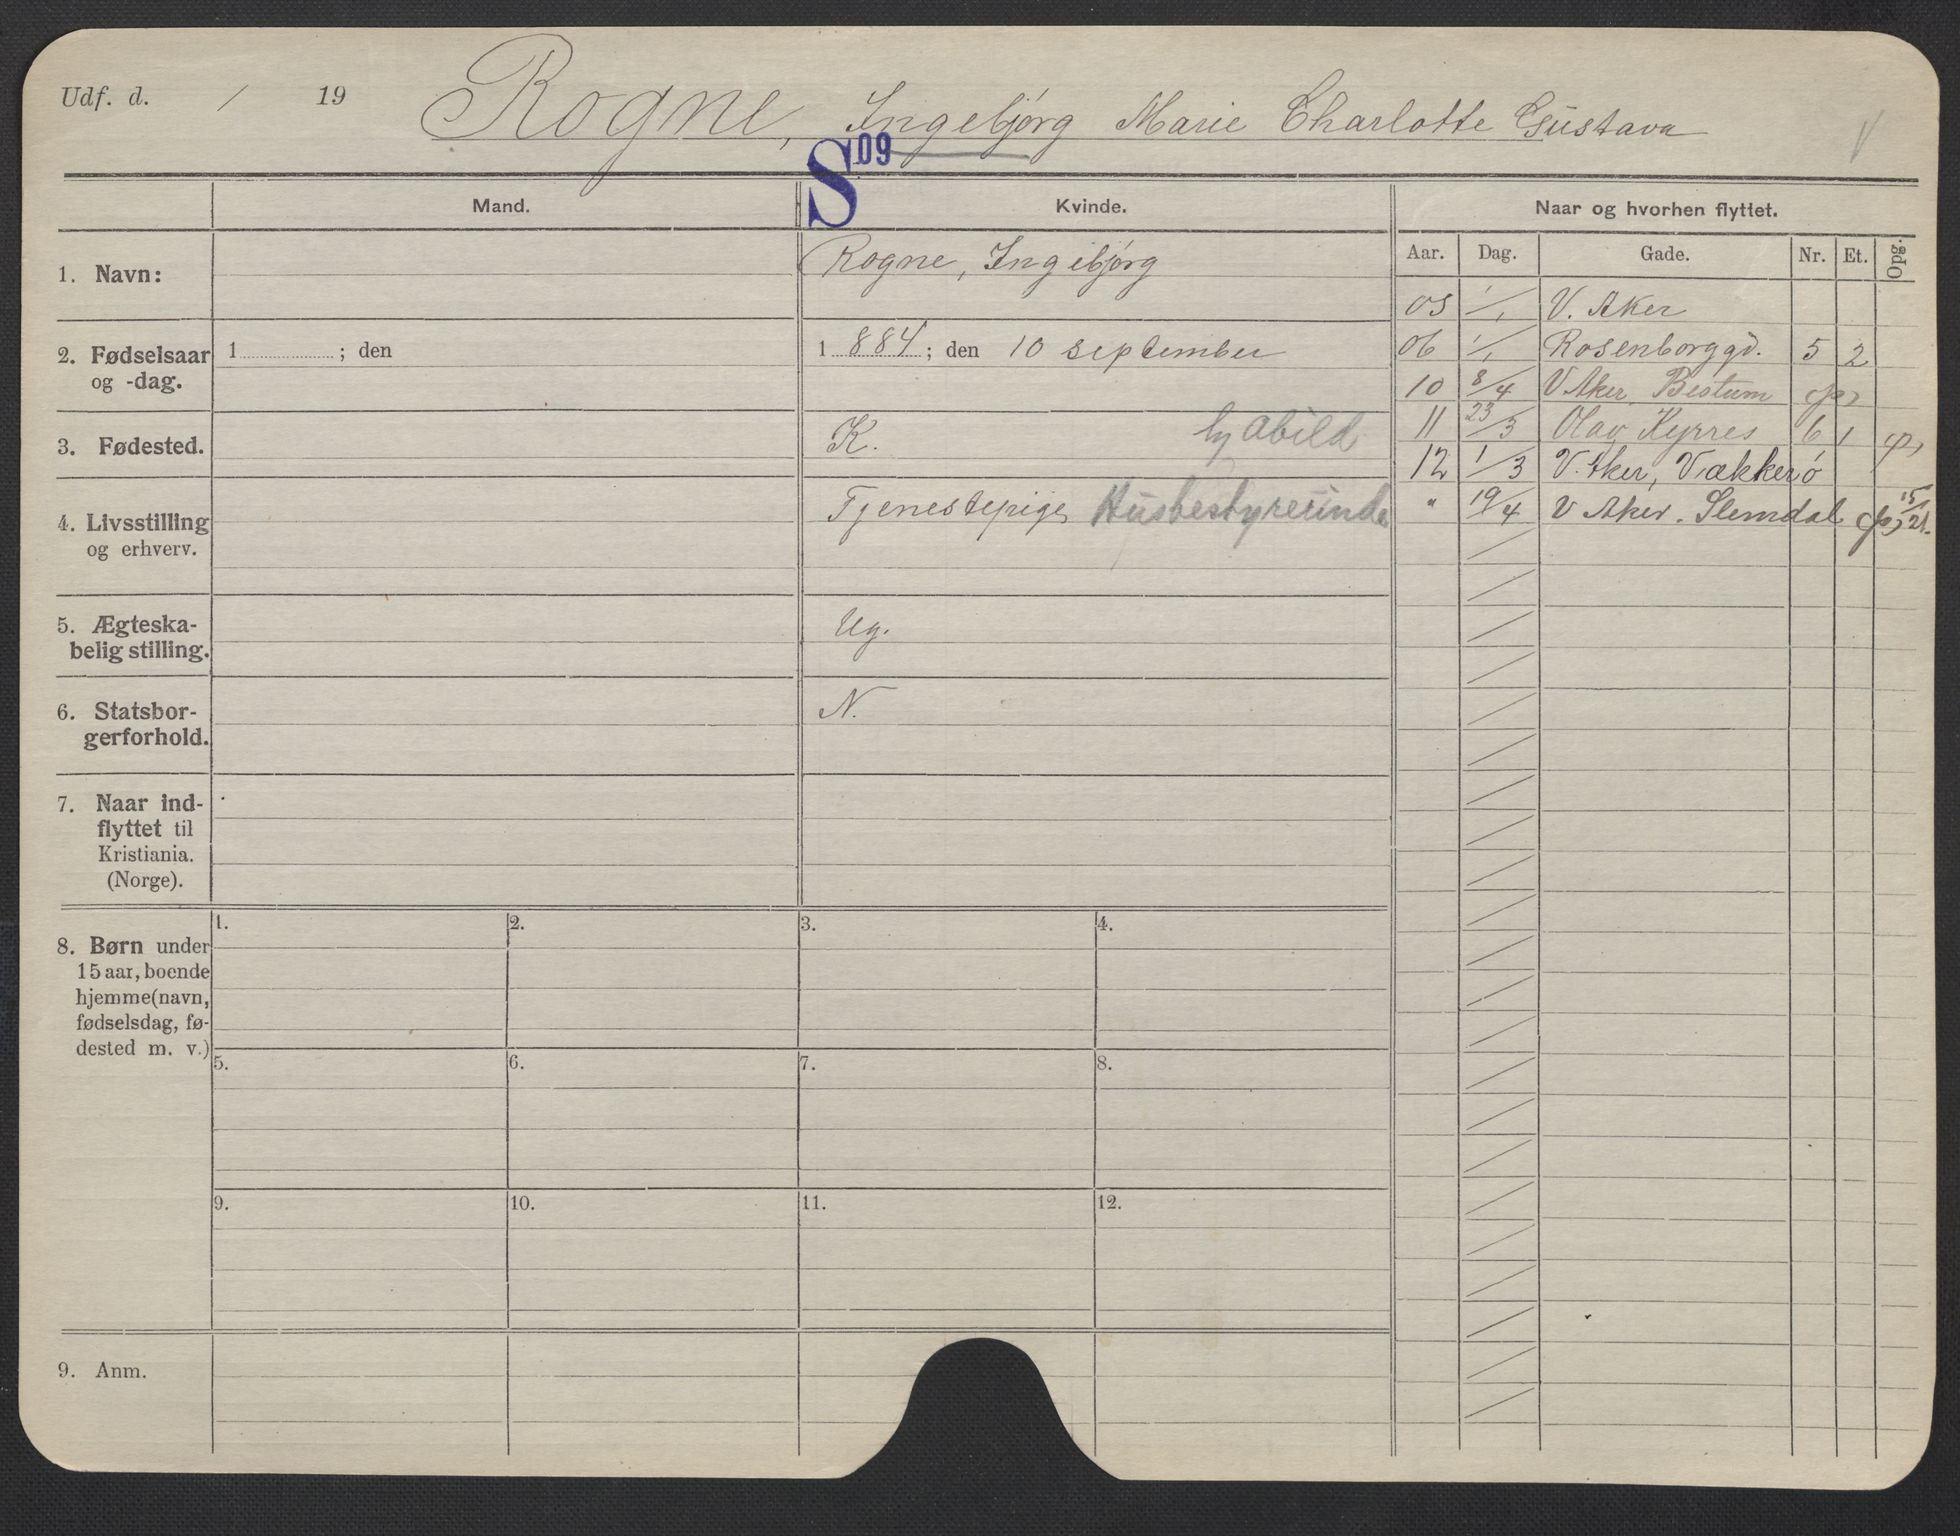 Udf. d. / 19 Rogne, Ingebjørg Marie Charlotte Gustava
S 09
Mand. Kvinde. Naar og hvorhen flyttet.
Aar. Dag. Gade. Nr. Et. Opg.
1. Navn: Rogne, Ingebjørg
2. Fødselsaar 1 ; den 1 884 ; den 10 september
og -dag.
3. Fødested. K. Abild
4. Livsstilling Tjenestepige, Husbestyrerinde
og erhverv.
5. Ægteska-
belig stilling. Ug.
6. Statsbor- N.
gerforhold.
7. Naar ind-
flyttet til
Kristiania.
(Norge).
8. Børn under
15 aar, boende
hjemme (navn,
fødselsdag, fø-
dested m. v.)
1. 2. 3. 4.
5. 6. 7. 8.
9. 10. 11. 12.
9. Anm.
05 1/1 V. Aker
06 1/1 Rosenborggd. 5 2
10 8/4 V Aker, Bestum
11 23/3 Olav Kyrres 6 1
12 1/3 V. Aker, Vækkerø
" 19/4 V Aker. Slemdal 15/21.